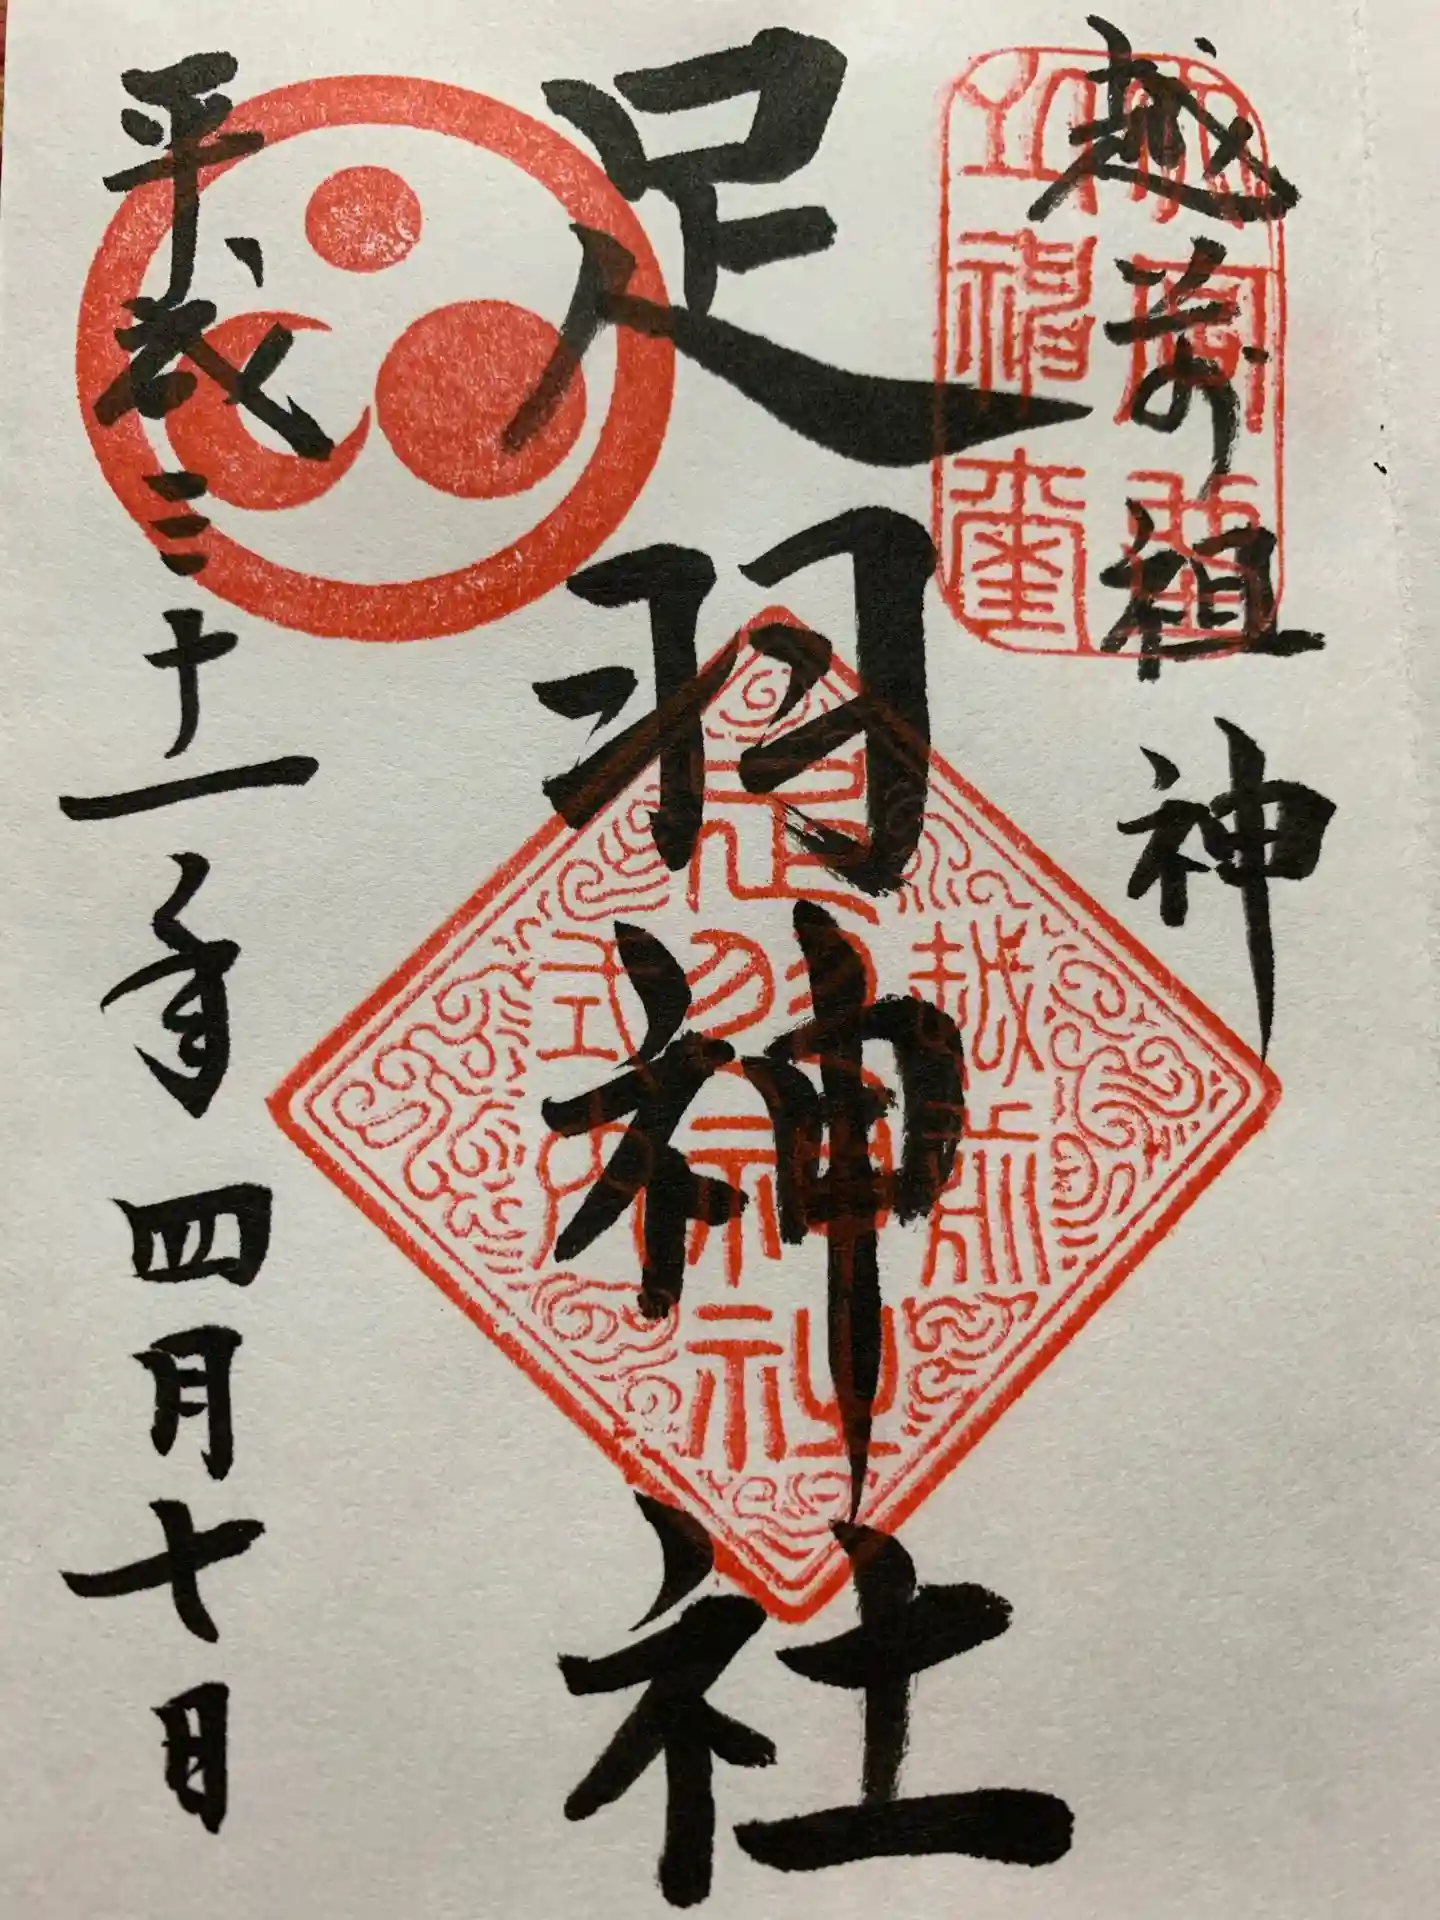 越前の祖神
足羽神社
平成三十一年四月十日
越前
足羽神社
式内